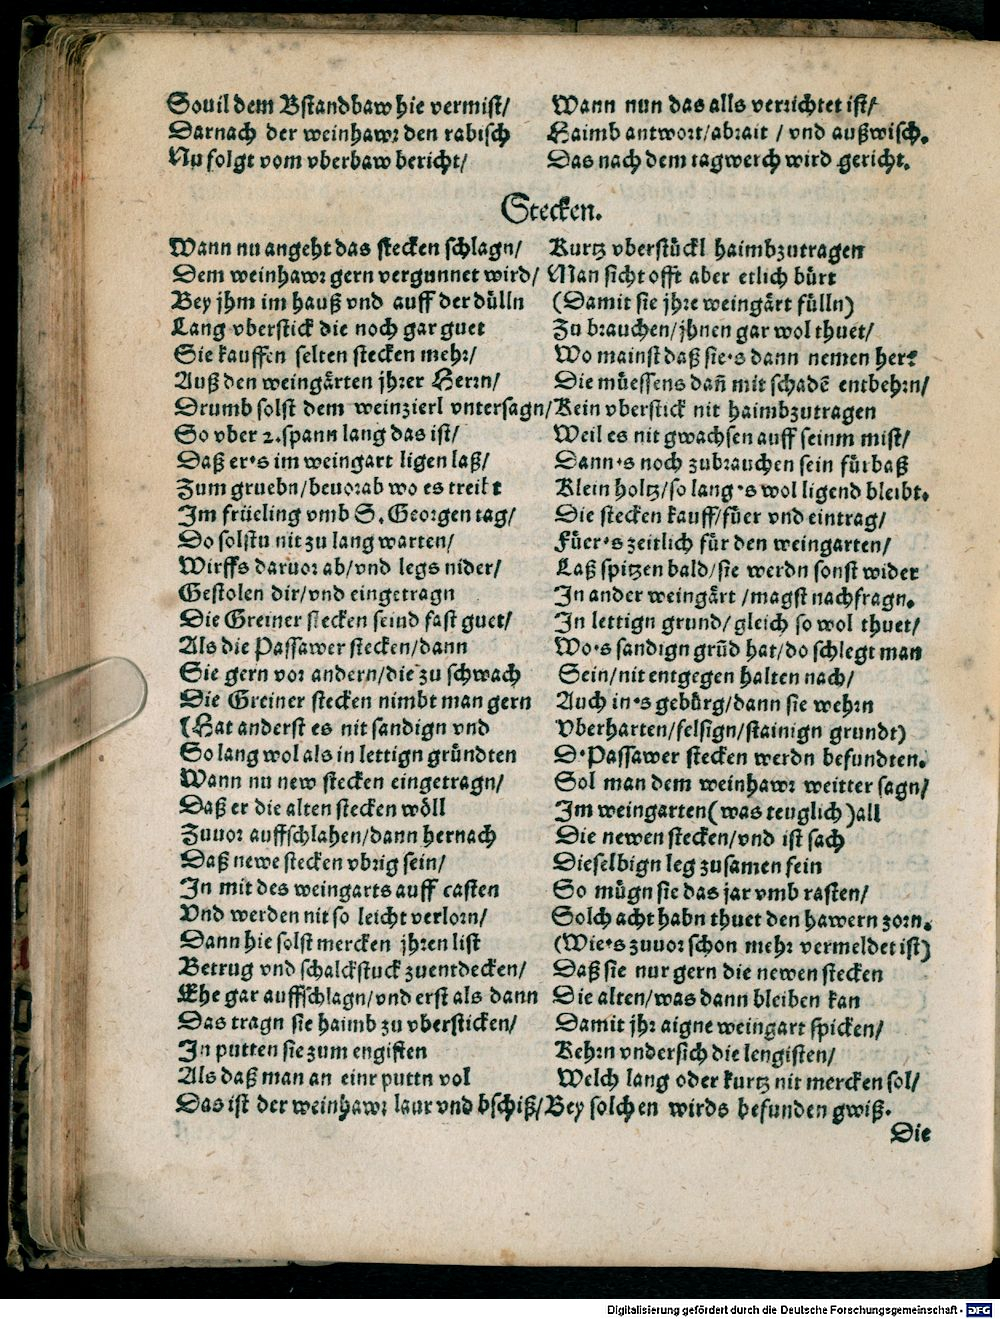 Souil dem Bstandbaw hie vermist/ Wann nun das alls verrichtet ist/
Darnach der weinhawr den rabisch Haimb antwort/abrait / vnd außwisch.
Nu folgt vom vberbaw bericht/ Das nach dem tagwerch wird gericht.
Stecken.
Wann nu angeht das stecken schlagn/ Kurtz vberstückl haimbzutragen
Dem weinhawr gern vergunnet wird/ Man sicht offt aber etlich bürt
Bey jhm im hauß vnd auff der dülln (Damit sie jhre weingärt fülln)
Lang vberstick die noch gar guet Zu brauchen/jhnen gar wol thuet/
Sie kauffen selten stecken mehr/ Wo mainst daß sie's dann nemen her?
Auß den weingärten jhrer Herrn/ Die müessens dañ mit schadē entbehrn/
Drumb solst dem weinzierl vntersagn/ Kein vberstick nit haimbzutragen
So vber 2.spann lang das ist/ Weil es nit gwachsen auff seinm mist/
Daß er's im weingart ligen laß/ Dann's noch zubrauchen sein fürbaß
Zum gruebn/beuorab wo es treibt Klein holtz/so lang's wol ligend bleibt.
Im früeling vmb S. Georgen tag/ Die stecken kauff/füer vnd eintrag/
Do solstu nit zu lang warten/ Füer's zeitlich für den weingarten/
Wirffs daruor ab/vnd legs nider/ Laß spitzen bald/sie werdn sonst wider
Gestolen dir/vnd eingetragn In ander weingärt /magst nachfragn.
Die Greiner stecken seind fast guet/ In lettign grund/gleich so wol thuet/
Als die Passawer stecken/dann Wo's sandign grūd hat/do schlegt man
Sie gern vor andern/die zu schwach Sein/nit entgegen halten nach/
Die Greiner stecken nimbt man gern Auch in's gebürg/dann sie wehrn
(Hat anderst es nit sandign vnd Vberharten/felsign/stainign grundt)
So lang wol als in lettign gründten D'Passawer stecken werdn befundten.
Wann nu new stecken eingetragn/ Sol man dem weinhawr weitter sagn/
Daß er die alten stecken wöll Im weingarten(was teuglich)all
Zuuor auffschlahen/dann hernach Die newen stecken/vnd ist sach
Daß newe stecken vbrig sein/ Dieselbign leg zusamen fein
In mit des weingarts auff casten So mügn sie das jar vmb rasten/
Vnd werden nit so leicht verlorn/ Solch acht habn thuet den hawern zorn.
Dann hie solst mercken jhren list (Wie's zuuor schon mehr vermeldet ist)
Betrug vnd schalckstuck zuentdecken/ Daß sie nur gern die newen stecken
Ehe gar auffschlagn/vnd erst als dann Die alten/was dann bleiben kan
Das tragn sie haimb zu vbersticken/ Damit jhr aigne weingart spicken/
In putten sie zum engisten Kehrn vndersich die lengisten/
Als daß man an einr puttn vol Welch lang oder kurtz nit mercken sol/
Das ist der weinhawr laur vnd bschiß/ Bey solchen wirds befunden gwiß.
Die
Digitalisierung gefördert durch die Deutsche Forschungsgemeinschaft - DFG